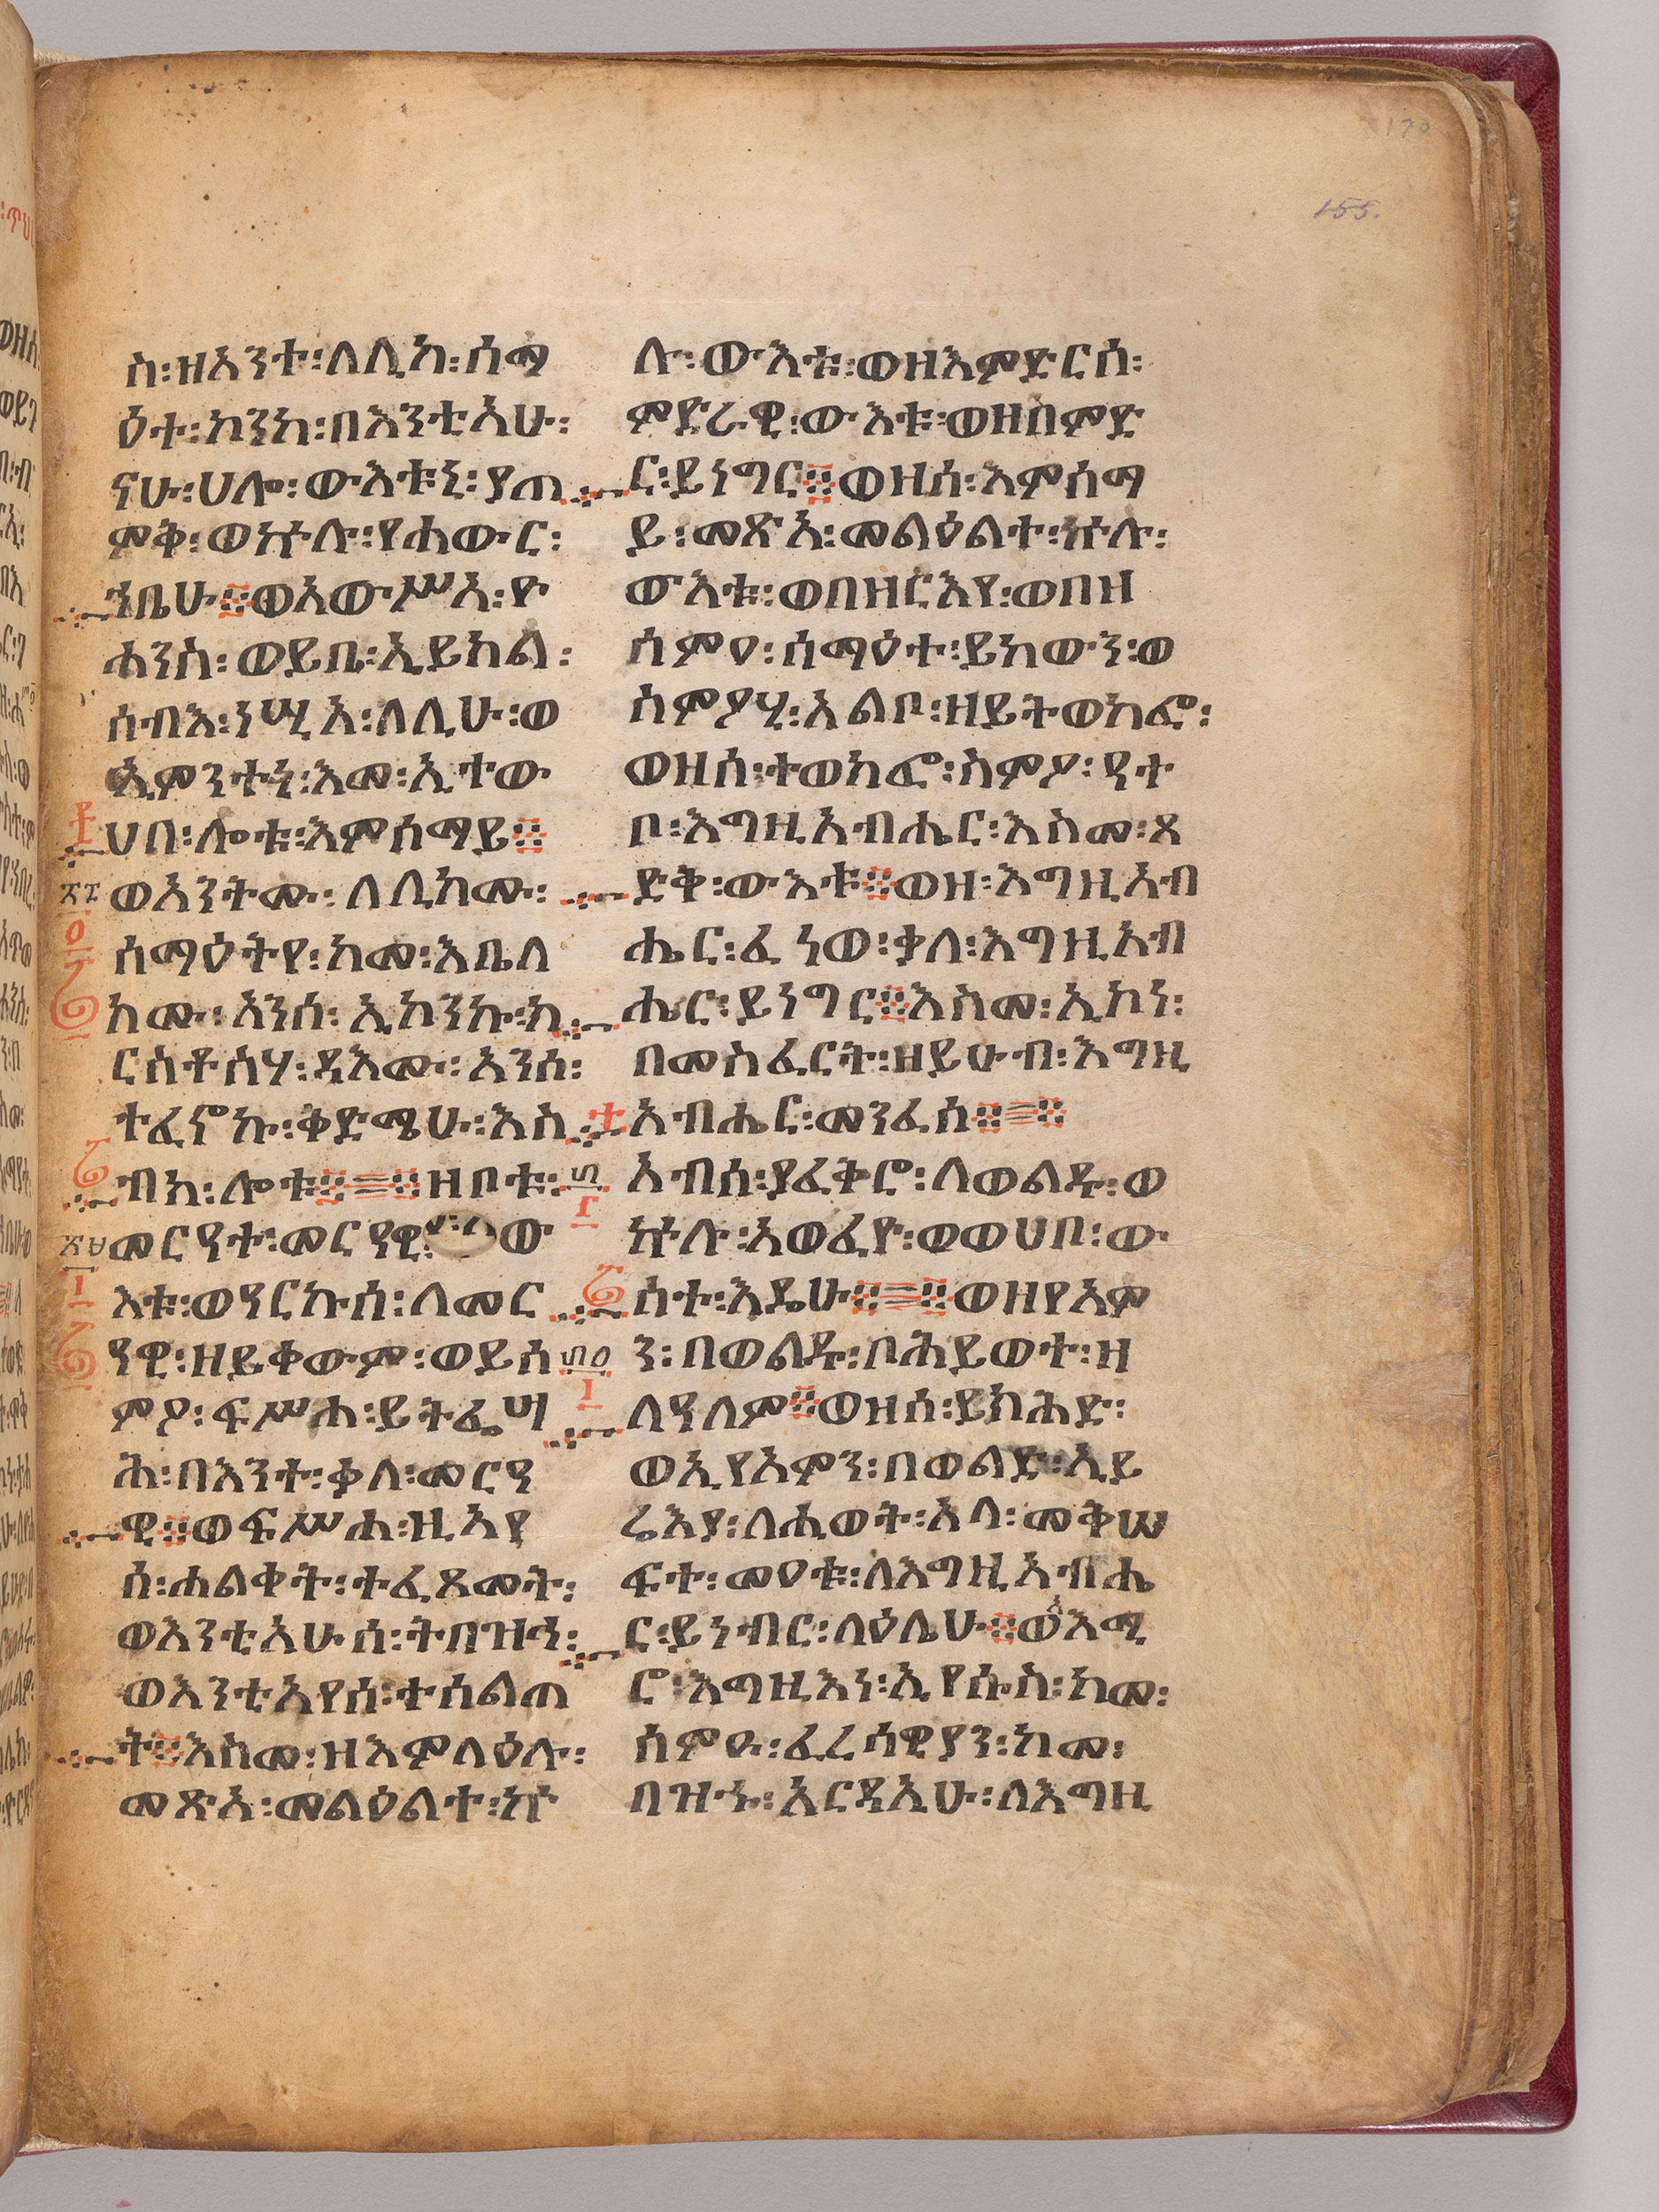 170
155.
ስ፡ዘአንተ፡ለሊከ፡ሰማ
ዕተ፡ኮንከ፡በእንቲአሁ፡
ናሁ፡ሀሎ፡ውእቱኒ፡ያጠ
ምቅ፡ወኵሉ፡የሐውር፡
ኀቤሁ፨ወአውሥአ፡ዮ
ሐንስ፡ወይቤ፡ኢይክል፡
ሰብእ፡ነሢአ፡ለሊሁ፡ወ
ኢምንተኒ፡እመ፡ኢተው
ህበ፡ሎቱ፡እምሰማይ፨
ወአንትሙ፡ለሊክሙ፡
ሰማዕትየ፡ከመ፡እቤለ
ክሙ፡አንሰ፡ኢኮንኩ፡ክ
ርስቶስሃ፡ዳእሙ፡አንሰ፡
ተፈኖኩ፡ቅድሜሁ፡እስ
ብክ፡ሎቱ፨፨ዘቦቱ፡
መርዓተ፡መርዓዊ፡ው
እቱ፡ወዓርኩሰ፡ለመር
ዓዊ፡ዘይቀውም፡ወይሰ
ምዖ፡ፍሥሐ፡ይትፌሣ
ሕ፡በእንተ፡ቃለ፡መርዓ
ዊ፨ወፍሥሐ፡ዚአየ
ሰ፡ሐልቀት፡ተፈጸመት፡
ወእንቲአሁሰ፡ትበዝኅ፡
ወእንቲአየሰ፡ተሰልጠ
ት፨እስመ፡ዘእምላዕሉ፡
መጽአ፡መልዕልተ፡ኵ
ሉ፡ውእቱ፡ወዘእምድርሰ፡
ምድራዊ፡ውእቱ፡ወዘበምድ
ር፡ይነግር፨ወዘሰ፡እምሰማ
ይ፡መጽአ፡መልዕልተ፡ኵሉ፡
ውእቱ፡ወበዘርእየ፡ወበዘ
ሰምዐ፡ሰማዕተ፡ይከውን፡ወ
ስምዖሂ፡አልቦ፡ዘይትወከፎ፡
ወዘሰ፡ተወክፎ፡ስምዖ፡ዓተ
ቦ፡እግዚአብሔር፡እስመ፡ጻ
ድቅ፡ውእቱ፨ወዘ፡እግዚአብ
ሔር፡ፈነወ፡ቃለ፡እግዚአብ
ሔር፡ይነግር፨እስመ፡ኢኮነ፡
በመስፈርት፡ዘይሁብ፡እግዚ
አብሔር፡መንፈሰ፨፨
አብሰ፡ያፈቅሮ፡ለወልዱ፡ወ
ኵሉ፡አወፈዮ፡ወወሀቦ፡ው
ስተ፡እዴሁ፨፨ወዘየአም
ን፡በወልዱ፡ቦሕይወተ፡ዘ
ለዓለም፨ወዘሰ፡ይክሕድ፡
ወኢየአምን፡በወልድ፡ኢይ
ሬእያ፡ለሒወት፡አላ፡መቅሠ
ፍተ፡መዐቱ፡ለእግዚአብሔ
ር፡ይነብር፡ላዕሌሁ፨ወአእሚ
ሮ፡እግዚእነ፡ኢየሱስ፡ከመ፡
ሰምዑ፡ፈረሳዊያን፡ከመ፡
በዝኁ፡አርዳኢሁ፡ለእግዚ